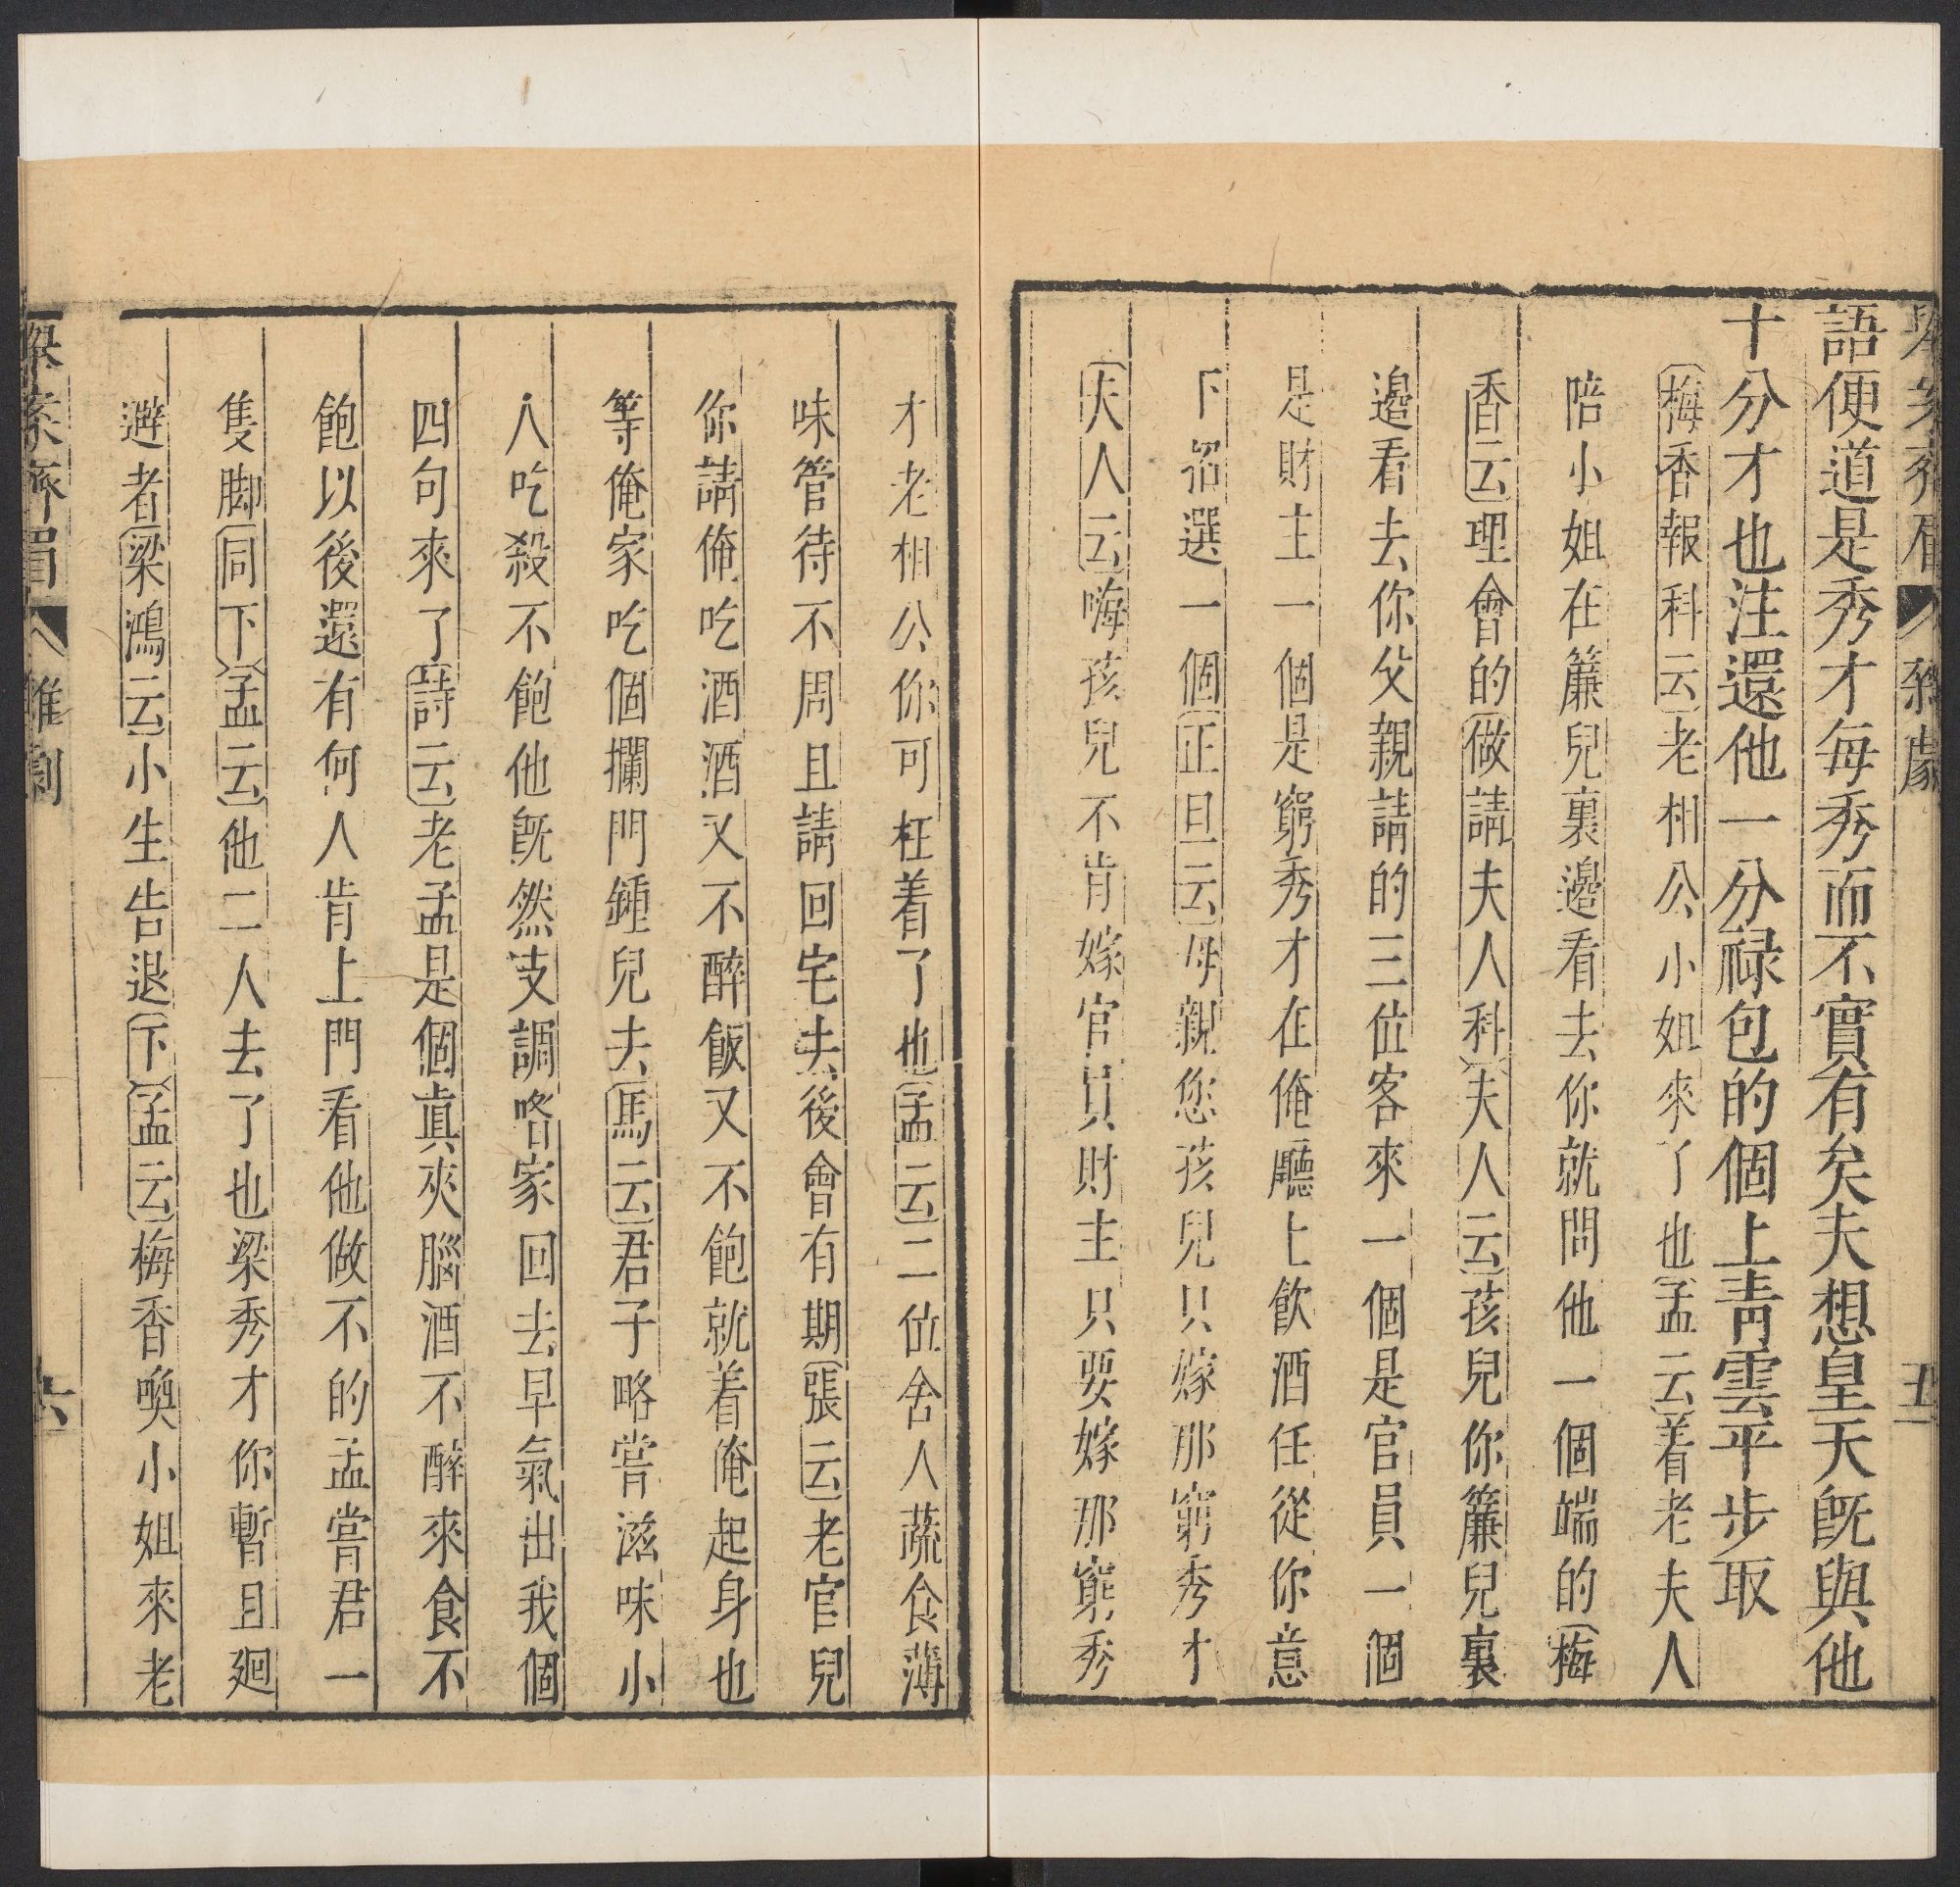 舉案齊眉 雜劇 五
語便道是秀才每秀而不實有矣夫想皇天旣與他
十分才也注還他一分祿包的個上靑雲平步取
〔梅香報科云〕老相公小姐來了也〔孟云〕着老夫人
陪小姐在簾兒裏邊看去你就問他一個端的〔梅
香云〕理會的〔做請夫人科〕〔夫人云〕孩兒你簾兒裏
邊看去你父親請的三位客來一個是官員一個
是財主一個是窮秀才在俺廳上飲酒任從你意
下招選一個〔正旦云〕母親您孩兒只嫁那窮秀才
〔夫人云〕嗨孩兒不肯嫁官員財主只要嫁那窮秀
才老相公你可枉着了也〔孟云〕二位舍人蔬食薄
味管待不周且請回宅去後會有期〔張云〕老官兒
你請俺吃酒酒又不醉飯又不飽就着俺起身也
等俺家吃個攔門鍾兒去〔馬云〕君子略嘗滋味小
人吃殺不飽他旣然支調喒家回去早氣出我個
四句來了〔詩云〕老孟是個眞夾腦酒不醉來食不
飽以後還有何人肯上門看他做不的孟嘗君一
隻脚〔同下〕〔孟云〕他二人去了也梁秀才你暫且廻
避者〔梁鴻云〕小生告退〔下〕〔孟云〕梅香喚小姐來老
舉案齊眉 雜劇 六